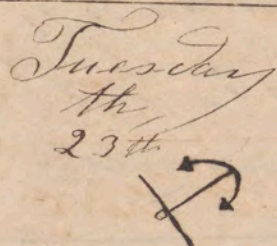 Tuesday
th,
23th